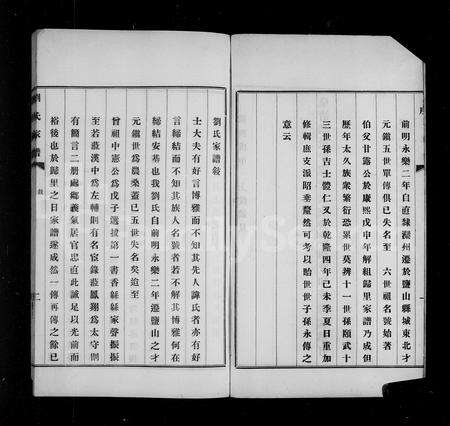 前明永樂二年自直隸灤州遷於鹽山縣城東北才
元鎮五世單傳俱已失名至 六世祖名號始著
伯父甘露公於康熙戊申年解組歸里家譜乃成但
歷年太久族衆繁衍恐累世莫辨十一世孫顯武十
三世孫吉士體仁又於乾隆四年己未季夏日重加
修輯庶支派昭垂釐然可考以貽世世子孫永傳之
意云
劉氏家譜敘
士大夫有好言博雅而不知其先人諱氏者亦有好
言締結而不知其族人名號者若不解其博雅何在
締結安基也我劉氏自前明永樂二年遷鹽山之才
元鎮世爲農桑蓋已五世失名矣迨至
曾祖中憲公爲戊子選拔第一書香緜緜家聲振振
至若蒞漢中爲左輔則有名宦錄蒞鳳翔爲太守則
有簡言二册處鄉義氣居官忠直此誠足以光前而
裕後也於歸里之日家譜遂成然一傳再傳之餘已
劉氏家譜 敘 二